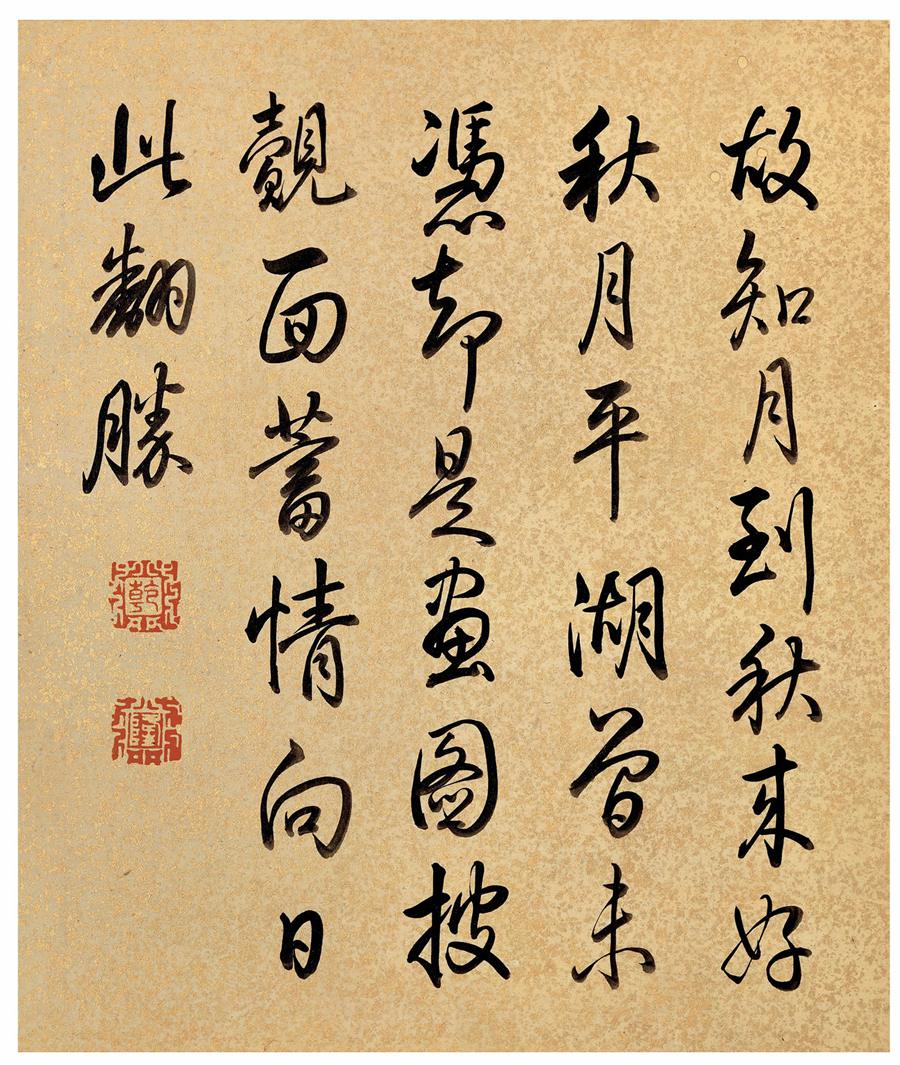 故知月到秋来好
秋月平湖曾未
憑却是画圖披
覿面蓄情向日
此翻勝
乾
隆